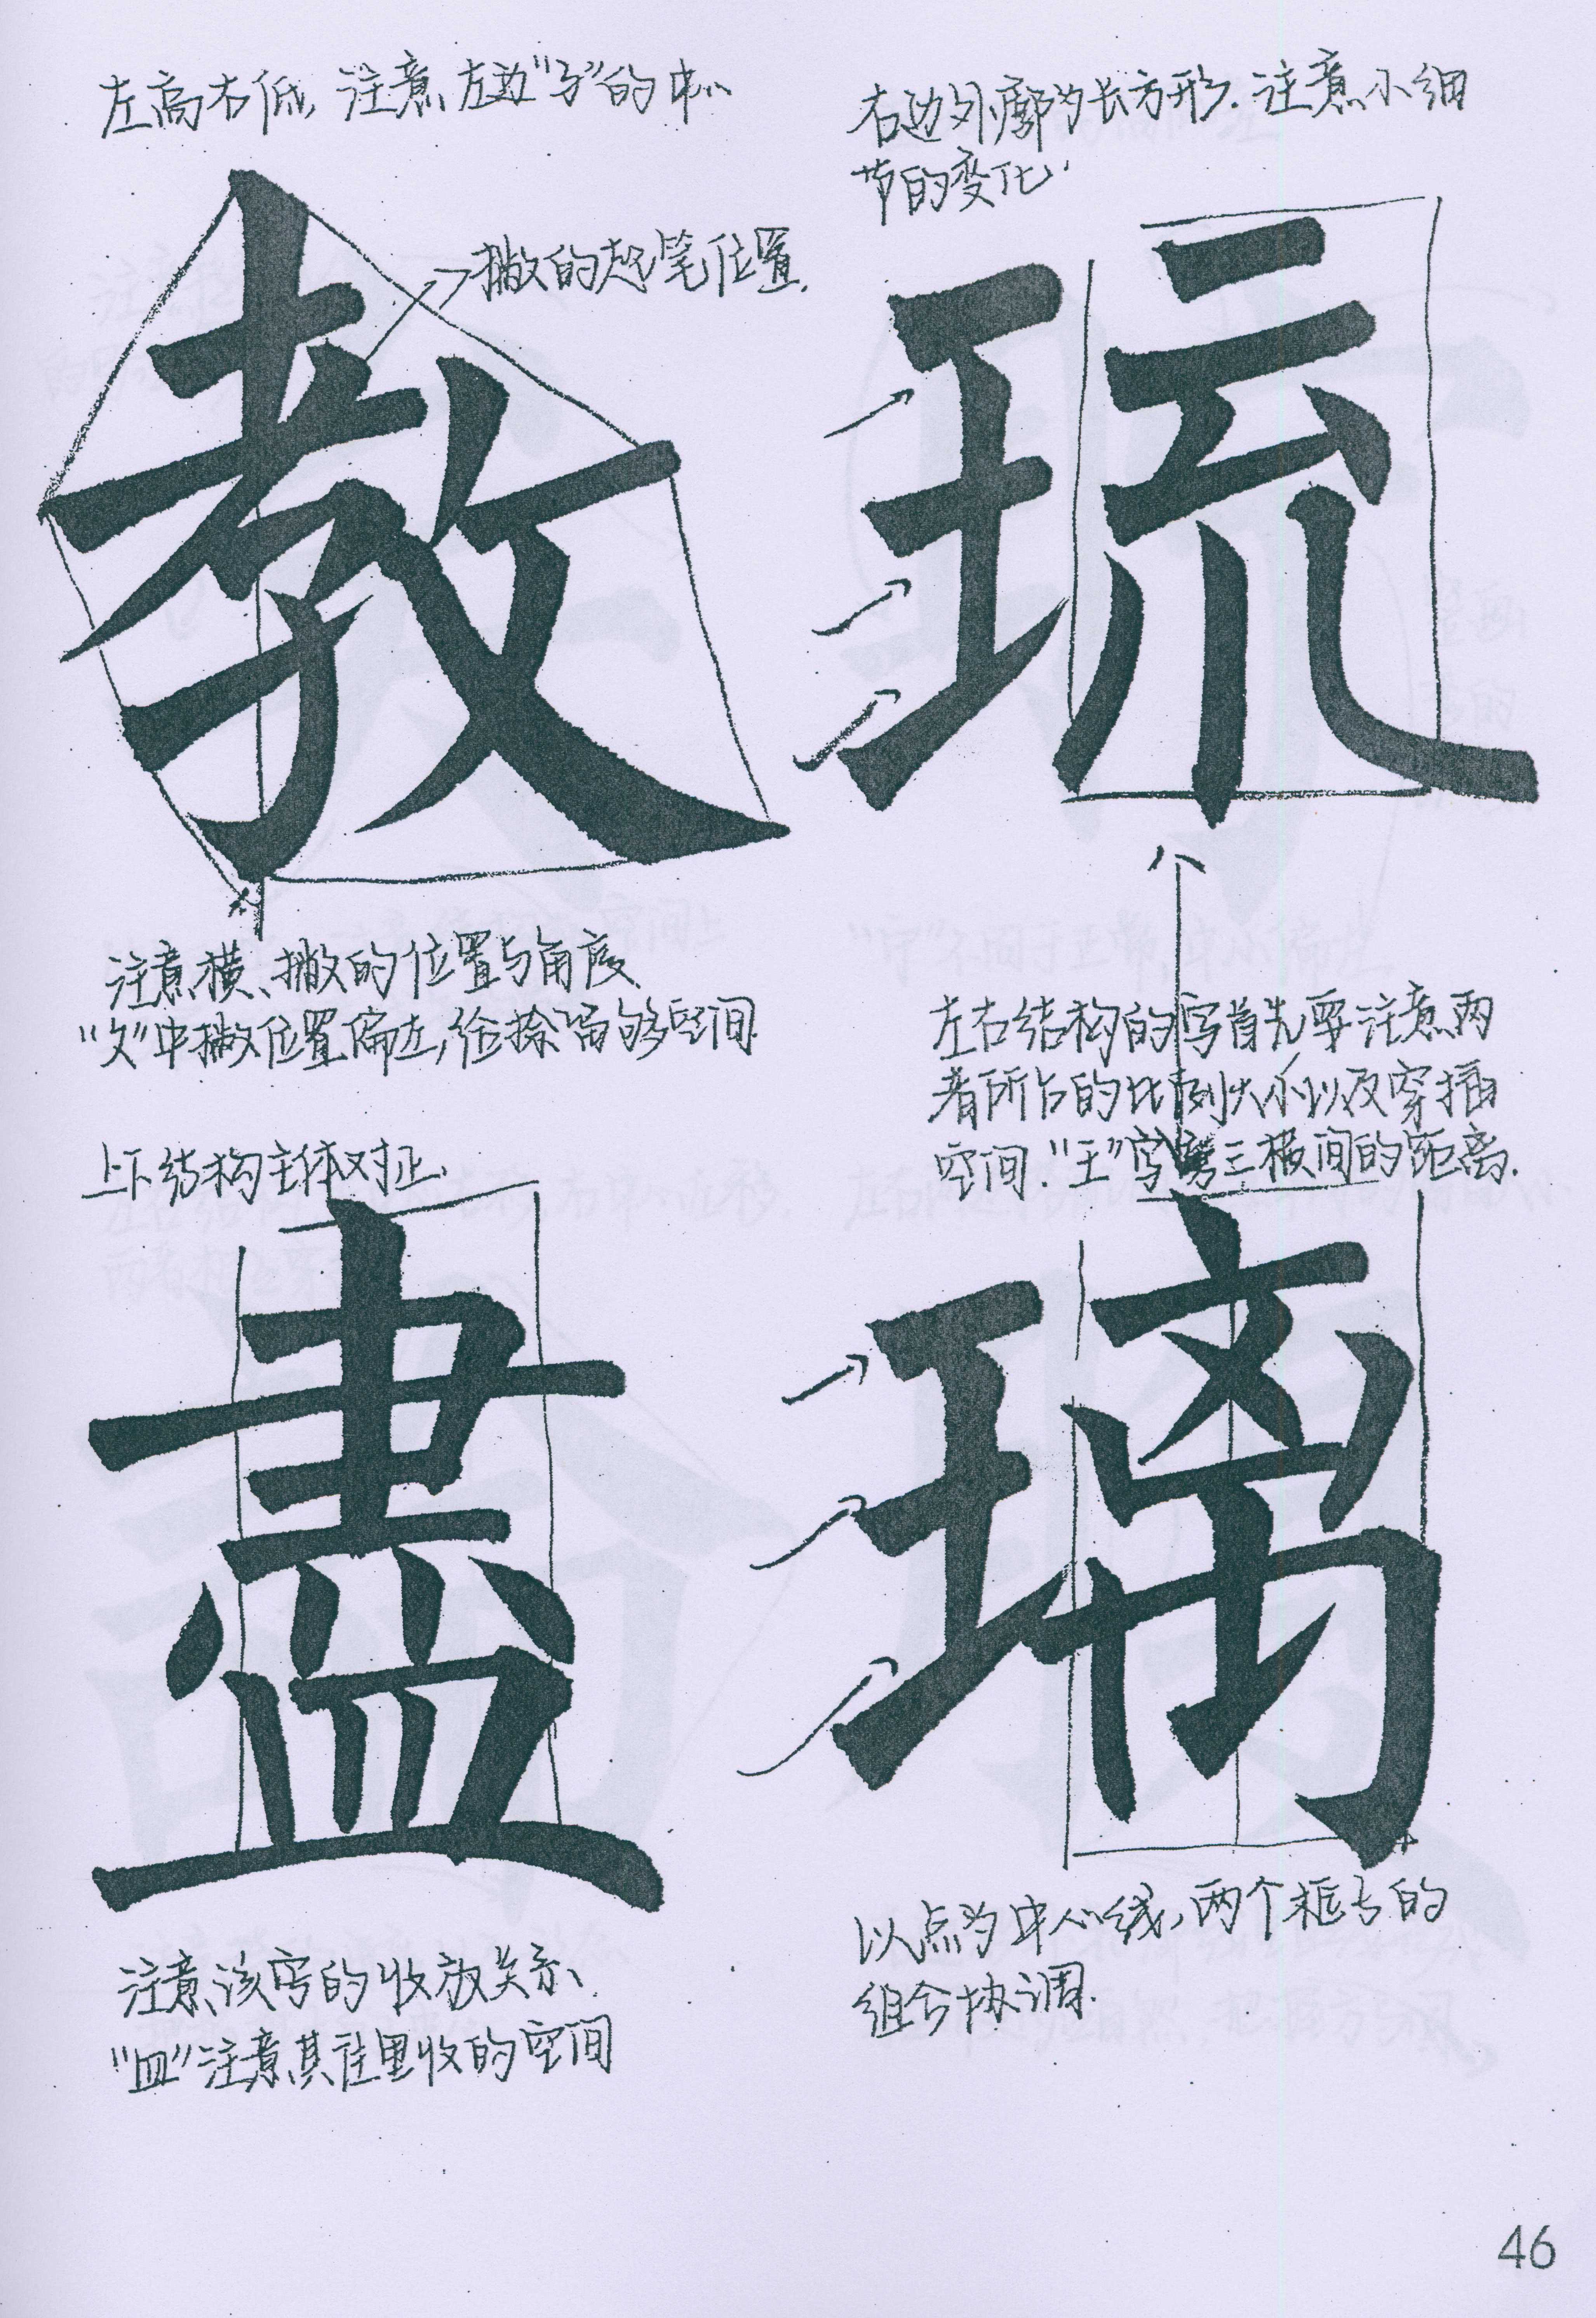 左高右低，注意左边“子”的中心
教
撇的起笔位置.
注意横、撇的位置与角度
“攵”中撇位置偏左，给捺留够空间.
右边外廓为长方形.注意小细
节的变化.
琉
左右结构的写首先要注意两
者所占的比例大小以及穿插
空间.“王”字旁三横间的距离.
上下结构主体对正.
盡
注意该字的收放关系、
“皿”注意其往里收的空间
璃
以点为中心线，两个框占的
组合协调.
46